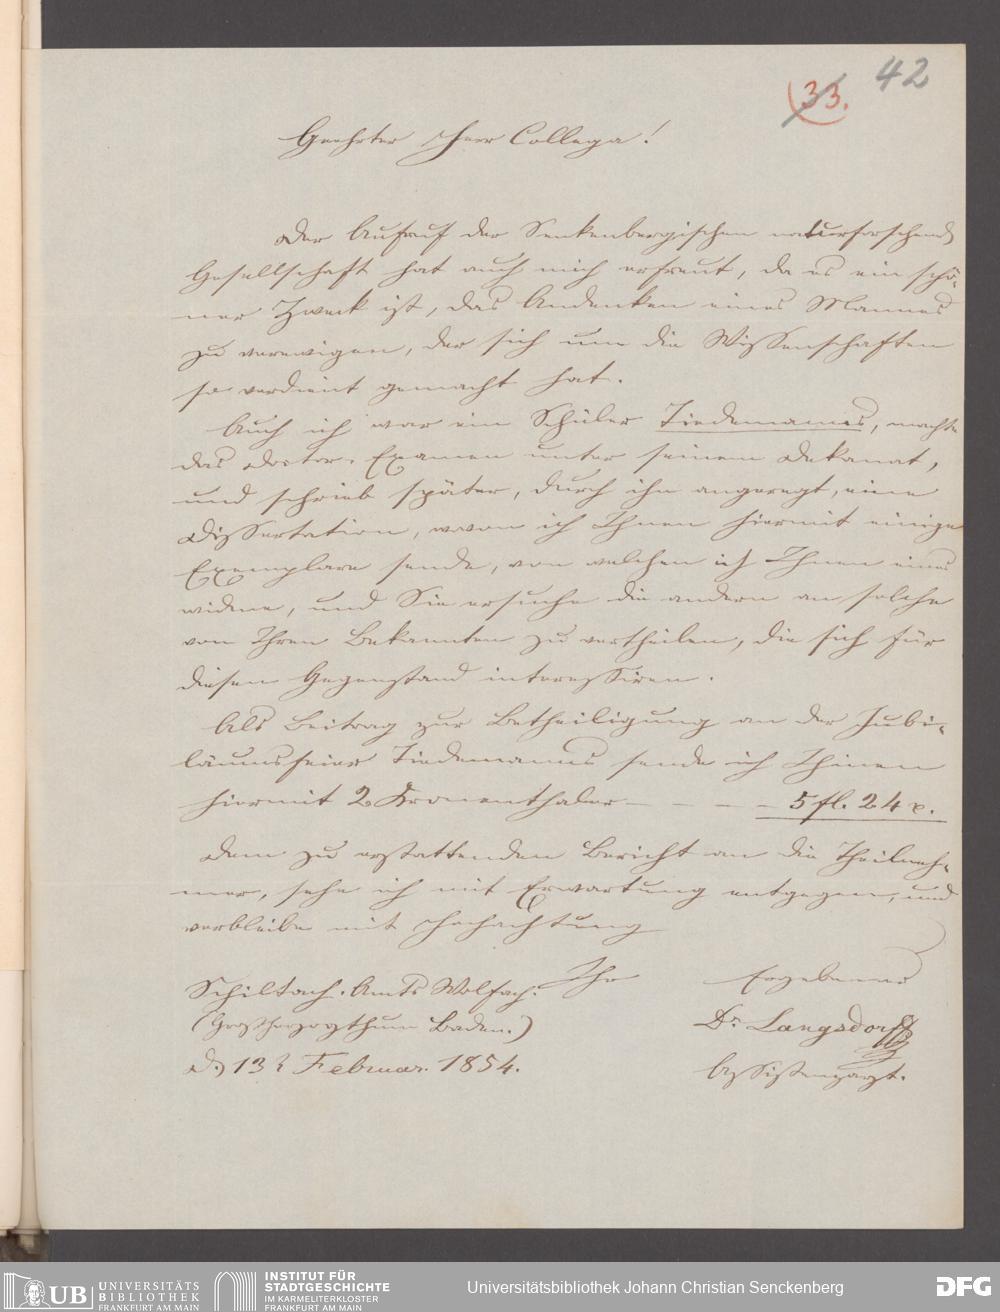 42
33.
Geehrter Herr Collega!
Der Aufruf der Senkenbergischen naturforschend
Gesellschaft hat auch mich erfreut, da es ein schö-
ner Zweck ist, das Andenken eines Mannes
zu verewigen, der sich um die Wissenschaften
so verdient gemacht hat.
Auch ich war ein Schüler Tiedemanns, machte
das Doctor-Examen unter seinem Dekanat,
und schrieb später, durch ihn angeregt, eine
Dissertation, wovon ich Ihnen hiermit einige
Exemplare sende, von welchen ich Ihnen eines
widme, und Sie ersuche die andern an solche
von Ihren Bekannten zu vertheilen, die sich für
diesen Gegenstand interessiren.
Als Beitrag zur Betheiligung an der Jubi-
läumsfeier Tiedemanns sende ich Ihnen
hiermit 2 Kronenthaler - - - - 5 fl. 24 x.
Dem zu erstattenden Bericht an die Theilneh-
mer, sehe ich mit Erwartung entgegen, und
verbleibe mit Hochachtung
Ihr Ergebener
Schiltach. Amts Wolfach.
(Großherzogthum Baden.)
Dr Langsdorff
d. 13 Februar. 1854.
Assistenzarzt.
UB UNIVERSITÄTS
BIBLIOTHEK
FRANKFURT AM MAIN
INSTITUT FÜR
STADTGESCHICHTE
IM KARMELITERKLOSTER
FRANKFURT AM MAIN
Universitätsbibliothek Johann Christian Senckenberg
DFG